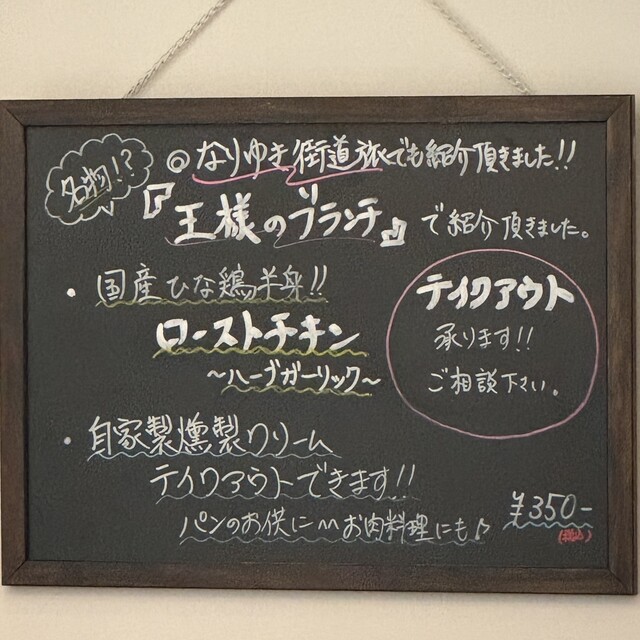 名物!?
◎なりゆき街道旅でも紹介頂きました!!
『王様のブランチ』で紹介頂きました。
・国産ひな鶏半身!!
ローストチキン
〜ハーブガーリック〜
テイクアウト
承ります!!
ご相談下さい。
・自家製燻製クリーム
テイクアウトできます!!
パンのお供に〜お肉料理にも♪
¥350-
(税込)